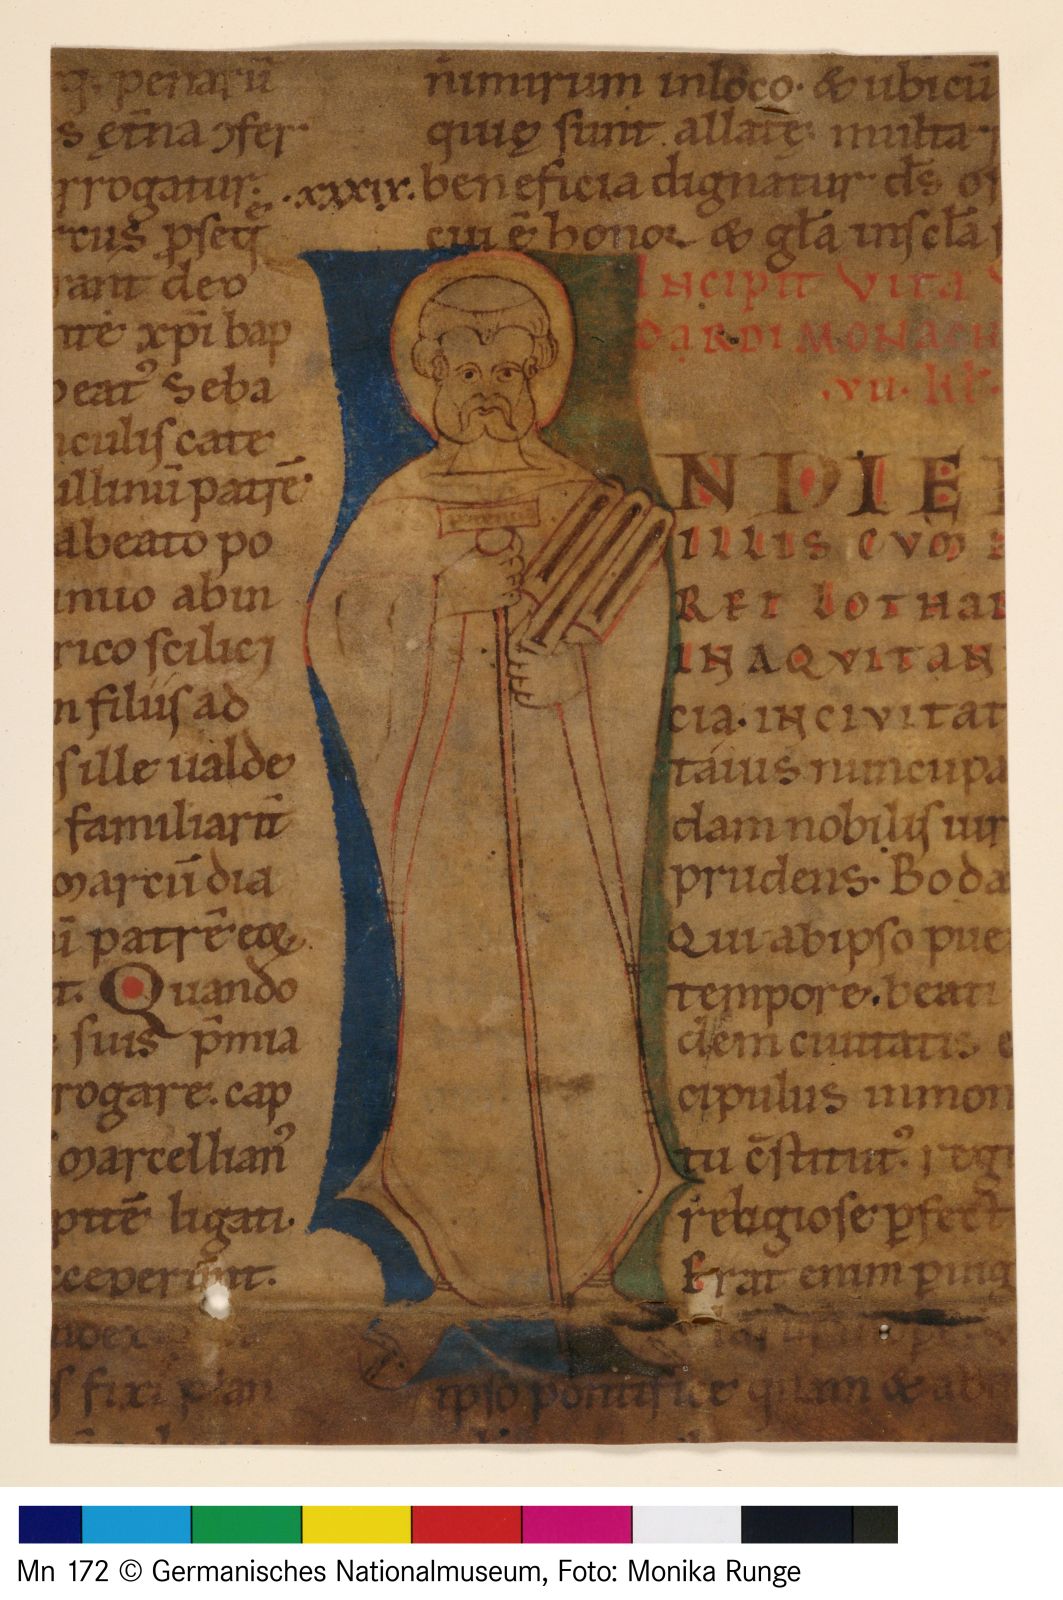 q. penarū
s ęt̄na ɔfer
rrogatur.
.xxxix.
rcus pseq
rant deo
nte xp̄i bap
beat᾽ Seba
nculis cate
illinū patrē
abeato po
inuo abin
rico scilic
n filiis ad
sille ualde
familiarū
marcū dia
ū patrē eoꝗ
t. Quando
suis p̄mia
rogare. cap
marcellian᾽
ptiē ligati.
cceperunt.
s fixi plan
nimirum inloco. & ubicū
quię sunt allatę. multa
beneficia dignatur d̄s o
cui ē honor & gl̄a in sc̄la
Incipit vita
DARDI MONACH
.VII. kł.
IN DIEB
ILLIS CVM
REX LOTHAR
IN AQVITAN
cia. IN CIVITAT
taius nuncupa
dam nobilis uir
prudens. Boda
Qui abipso pue
tempore. beati
dem ciuitatis e
cipulus inmon
tu c̄stitut᾽. regi
religiose pfect
Erat enim ping
ipso pontifice quam & ab
Mn 172 © Germanisches Nationalmuseum, Foto: Monika Runge